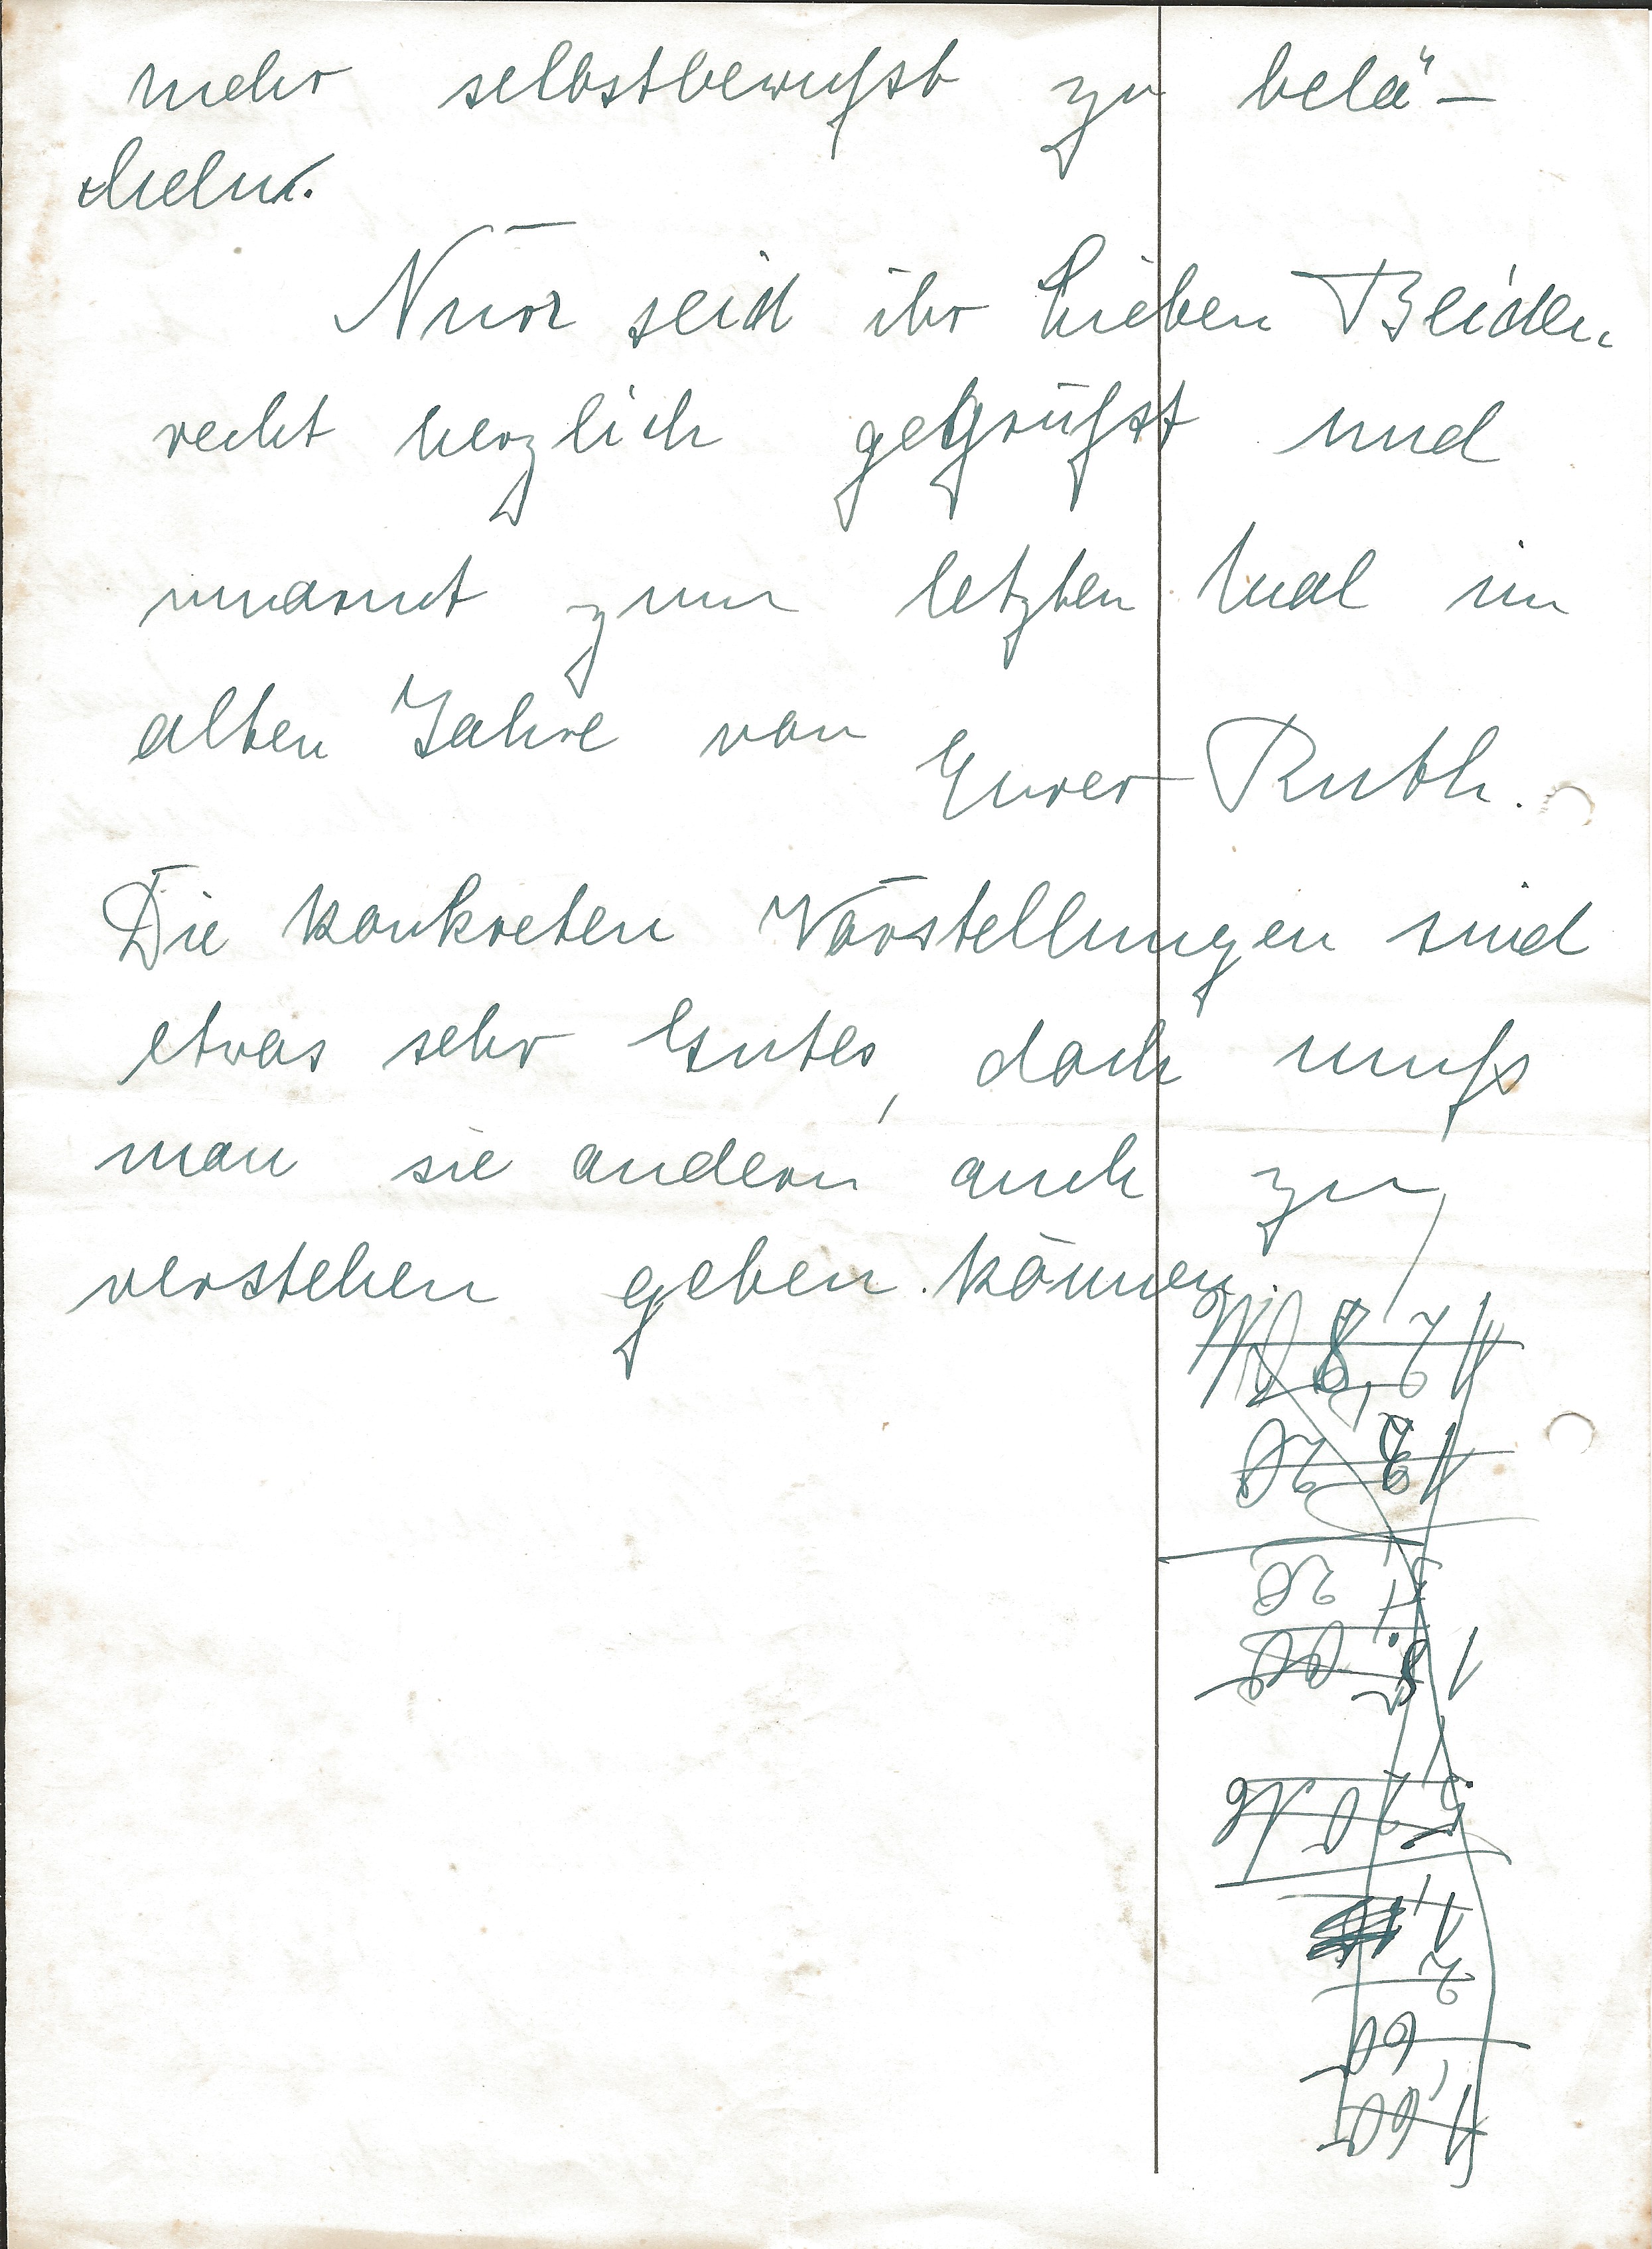 mehr selbstbewußt zu belä-
cheln.
Nun seid ihr lieben Beiden
recht herzlich gegrüßt und
umarmt zum letzten Mal im
alten Jahre von
Eurer Ruth.
Die konkreten Vorstellungen sind
etwas sehr Gutes, doch muß
man sie andern auch zu
verstehen geben können.